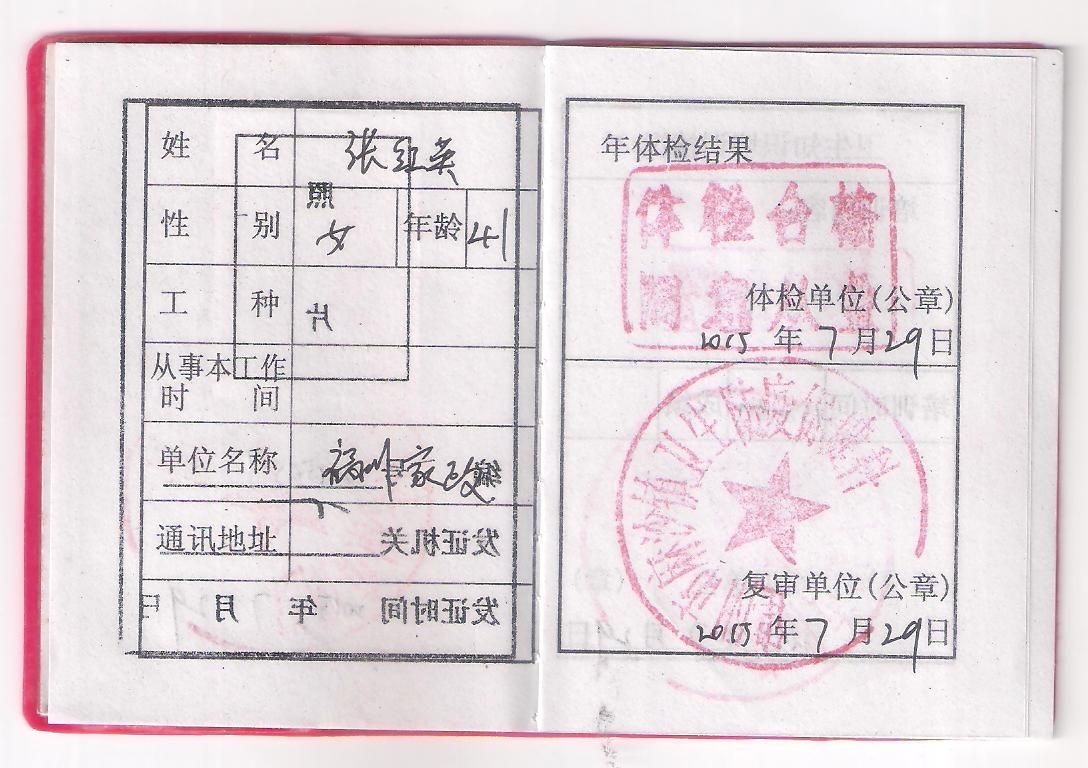 姓名 张红英
性别 女 年龄 41
工种
从事本工作
时间
单位名称 福州家政
通讯地址
照
片
编号
发证机关
发证时间 年 月 日
年体检结果
体检合格
体检单位(公章)
2015年7月29日
复审单位(公章)
2015年7月29日